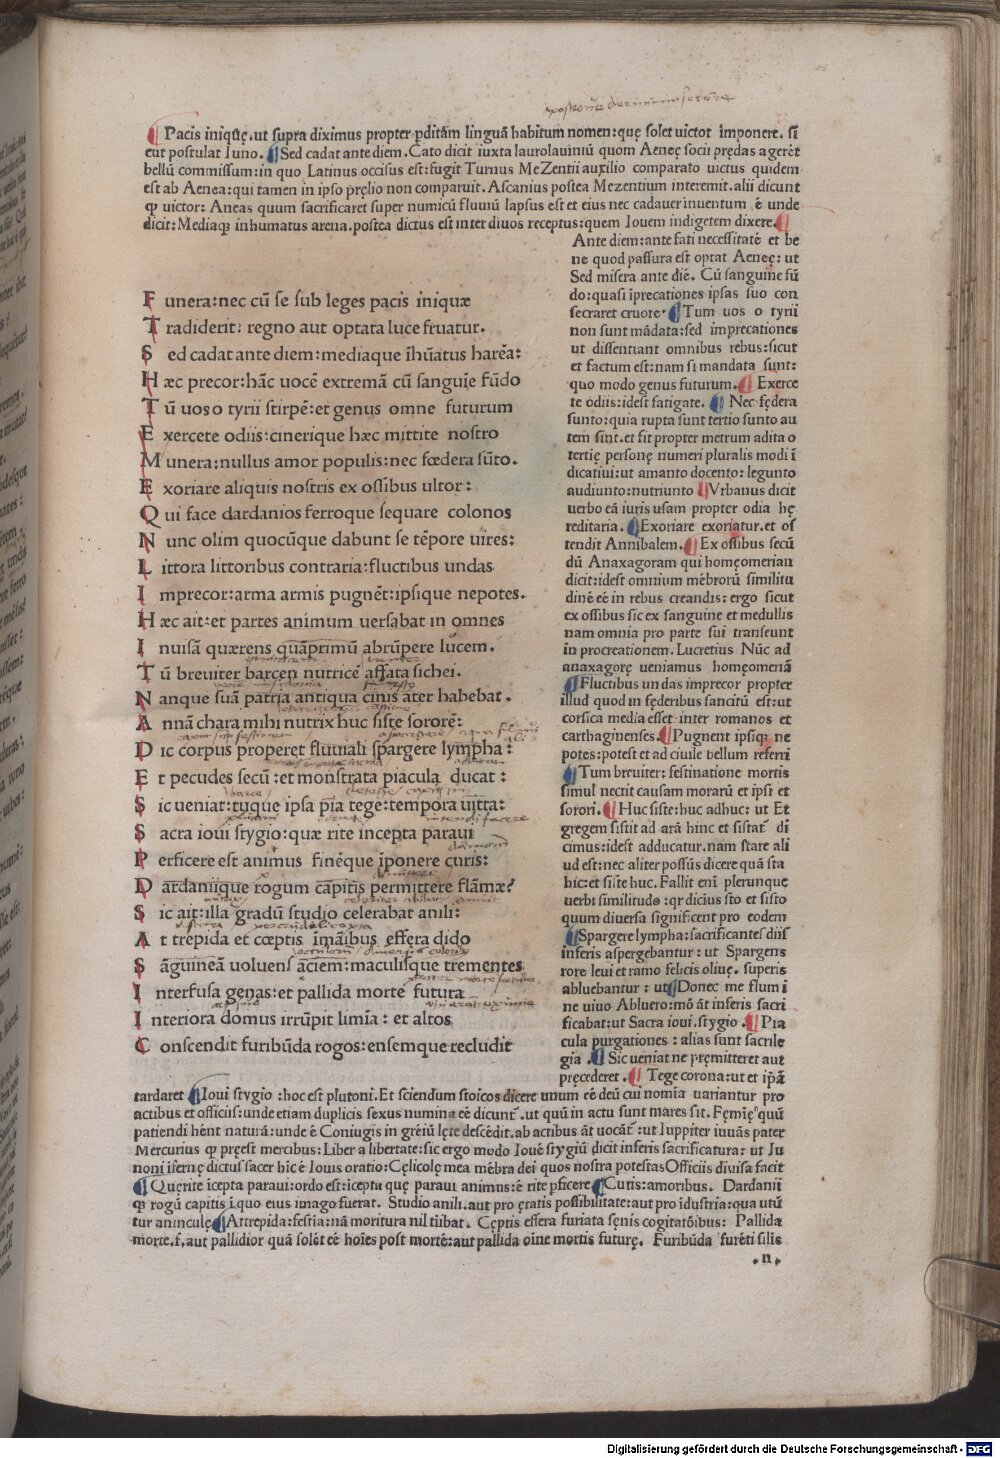 Pacis iniquę.ut supra diximus propter ꝑditãm linguã habitum nomen:quę solet uictor imponere. si
cut postulat Iuno. Sed cadat ante diem.Cato dicit iuxta laurolauiniũ quom Aeneę socii prędas agerẽt
bellũ commissum:in quo Latinus occisus est:fugit Turnus MeZentii auxilio comparato uictus quidem
est ab Aenea:qui tamen in ipso pręlio non comparuit. Ascanius postea Mezentium interemit.alii dicunt
ꝙ uictor: Aneas quum sacrificaret super numicũ fluuiũ lapsus est et eius nec cadauer inuentum ẽ unde
dicit:Mediaqꝫ inhumatus arena.postea dictus est inter diuos receptus:quem Iouem indigetem dixere.
Funera:nec cũ se sub leges pacis iniquæ
Tradiderit: regno aut optata luce fruatur.
Sed cadat ante diem:mediaque ĩhũatus harẽa:
Hæc precor:hãc uocẽ extremã cũ sanguĩe fũdo
Tũ uos o tyrii stirpẽ:et genus omne futurum
Exercete odiis:cinerique hæc mittite nostro
Munera:nullus amor populis:nec fœdera sũto.
Exoriare aliquis nostris ex ossibus ultor:
Qui face dardanios ferroque sequare colonos
Nunc olim quocũque dabunt se tẽpore uires:
Littora littoribus contraria:fluctibus undas
Imprecor:arma armis pugnẽt:ipsique nepotes.
Hæc ait:et partes animum uersabat in omnes
Inuisã quærens quãprimũ abrũpere lucem.
Tũ breuiter barcen nutricẽ affata sichei.
Nanque suã patria antiqua cinis ater habebat.
Annã chara mihi nutrix huc siste sororẽ:
Dic corpus properet fluuiali spargere lympha:
Et pecudes secũ:et monstrata piacula ducat:
Sic ueniat:tuque ipsa pĩa tege:tempora uitta:
Sacra ioui stygio:quæ rite incepta paraui
Perficere est animus finẽque ĩponere curis:
Dardaniique rogum capitis permittere flãmæ?
Sic ait:illa gradũ studio celerabat anili:
At trepida et cœptis ĩmãibus effera dido
Sãguineã uoluens aciem:maculisque trementes
Interfusa genas:et pallida morte futura
Interiora domus irrũpit limĩa: et altos
Conscendit furibũda rogos:ensemque recludit
Ante diem:ante fati necessitatẽ et be
ne quod passura est optat Aeneę: ut
Sed misera ante diẽ. Cũ sanguine fũ
do:quasi ĩprecationes ipsas suo con
secraret cruore. Tum uos o tyrii
non sunt mãdata:sed imprecationes
ut dissentiant omnibus rebus:sicut
et factum est:nam si mandata sunt:
quo modo genus futurum. Exerce
te odiis:idest fatigate. Nec fędera
sunto:quia rupta sunt tertio sunto au
tem sint.et fit propter metrum adita o
tertię personę numeri pluralis modi ĩ
dicatiui:ut amanto docento: legunto
audiunto:nutriunto Vrbanus dicit
uerbo eã iuris usam propter odia hę
reditaria. Exoriare exoriatur.et os
tendit Annibalem. Ex ossibus secũ
dũ Anaxagoram qui homęomerian
dicit:idest omnium mẽbrorũ similitu
dinẽ eẽ in rebus creandis: ergo sicut
ex ossibus sic ex sanguine et medullis
nam omnia pro parte sui transeunt
in procreationem. Lucretius Nũc ad
anaxagorę ueniamus homęomeriã
Fluctibus undas imprecor propter
illud quod in fęderibus sancitũ est:ut
corsica media esset inter romanos et
carthaginenses. Pugnent ipsiqꝫ ne
potes:potest et ad ciuile bellum referri
Tum breuiter: festinatione mortis
simul nectit causam morarũ et ipsi et
sorori. Huc siste:huc adhuc: ut Et
gregem sistit ad arã hinc et sistat di
cimus:idest adducatur.nam stare ali
ud est:nec aliter possũs dicere quã sta
hic:et siste huc. Fallit enĩ plerunque
uerbi similitudo :qr dicius sto et sisto
quum diuersa significent pro eodem
Spargere lympha:sacrificantes diis
inferis aspergebantur: ut Spargens
rore leui et ramo felicis oliuę. superis
abluebantur: ut Donec me flumi
ne uiuo Abluero:mõ ãt inferis sacri
ficabat:ut Sacra ioui.stygio. Pia
cula purgationes : alias sunt sacrile
gia . Sic ueniat ne pręmitteret aut
pręcederet. Tege corona:ut et ipãs
tardaret Ioui stygio:hoc est plutoni.Et sciendum stoicos dicere unum eẽ deũ cui nomĩa uariantur pro
actibus et officiis:unde etiam duplicis sexus numina eẽ dicunt.ut quũ in actu sunt mares sit. Fęmię quũ
patiendi hẽnt naturã:unde ẽ Coniugis in gręiũ lęte descẽdit.ab actibus ãt uocãt:ut Iuppiter iuuãs pater
Mercurius ꝙ pręest mercibus:Liber a libertate:sic ergo modo Iouẽ stygiũ dicit inferis sacrificatura: ut Iu
noni ĩfernę dictus sacer hic ẽ Iouis oratio:Cęlicolę mea mẽbra dei quos nostra potestas Officiis diuisa facit
Quę rite ĩcepta paraui:ordo est:ĩcepta quę paraui animus:ẽ rite ꝑficere Curis:amoribus. Dardanii
ꝙ rogũ capitis ĩ.quo eius imago fuerat. Studio anili.aut pro ęratis possibilitate:aut pro ĩdustria:qua utũ
tur aninculę Attrepida:festia:nã moritura nil tĩibat. Cęptis effera furiata sęnis cogitatõibus: Pallida
morte.f.aut pallidior quã solẽt eẽ hoĩes post mortẽ:aut pallida oĩne mortis futurę. Furibũda furẽti silis
.n.
Digitalisierung gefördert durch die Deutsche Forschungsgemeinschaft - DFG